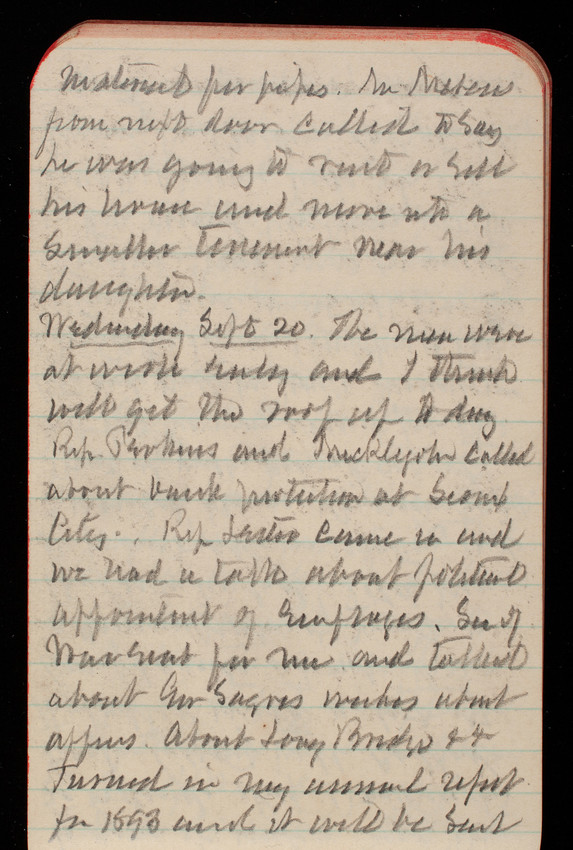 material for pipes. Mr
from next door called to say
he was going to rent or sell
his house and move into a
smaller tenement near his
daughter.
Wednesday Sept 20. The men were
at work early and I think
will get the roof up to day.
Rep. Perkins and called
about bank protection at Sioux
City. Rep came in and
we had a talk about political
appointment of employes. Sec of
War sent for me and talked
about Gov works about
affairs. About Long Bridge &&
Turned in my annual report
for 1893 and it will be sent